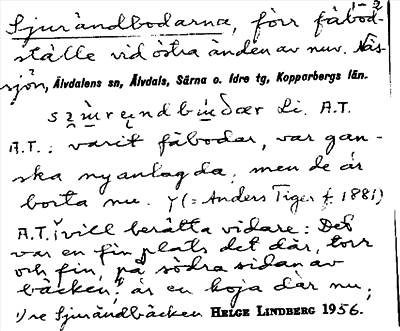 Sjurändbodarna, förr fäbod-
ställe vid östra änden av nuv. Näs-
sjön, Älvdalens sn, Älvdals, Särna o. Idre tg, Kopparbergs län.
Li. A.T.
A.T.: varit fäbodar, var gan-
ska nyanlagda, men de är
borta nu. (= Anders Tiger f. 1881)
A.T. vill berätta vidare: Det
var en fin plats det där, torr
och fin, på södra sidan av
bäcken; är en koja där nu;
1) re Sjurändbäcken HELGE LINDBERG 1956.